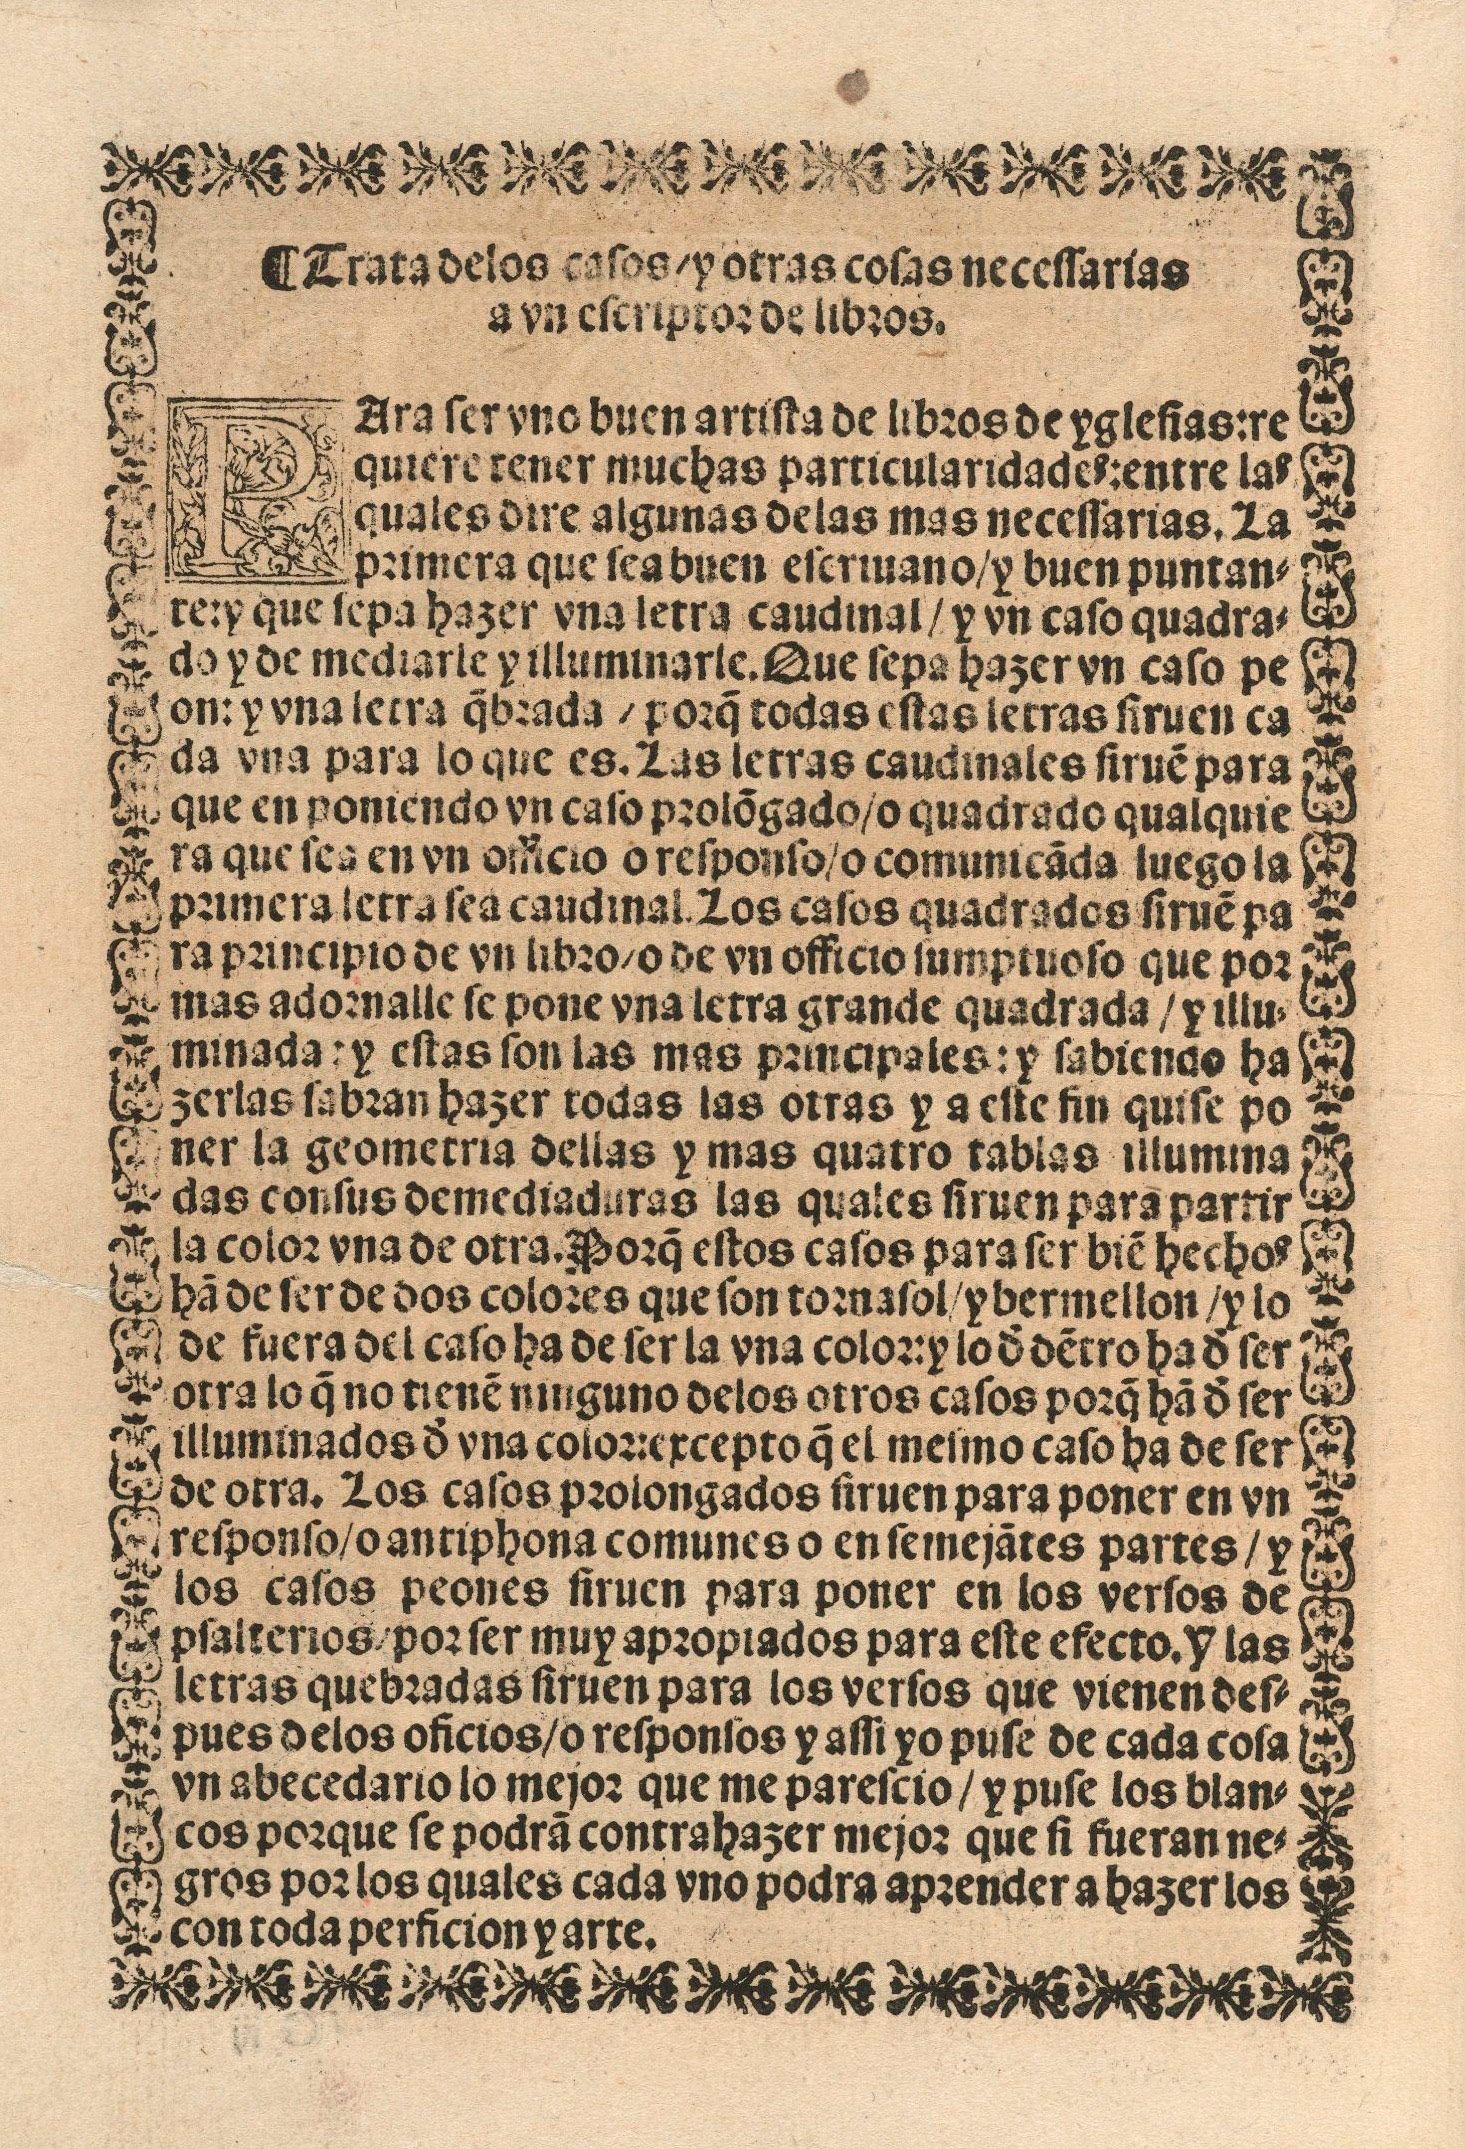 ¶ Trata delos casos/y otras cosas necessarias
a vn escriptor de libros.
PAra ser vno buen artista de libros de yglesias:re
quiere tener muchas particularidades:entre las
quales dire algunas delas mas necessarias. La
primera que sea buen escriuano/y buen puntan-
te:y que sepa hazer vna letra caudinal/ y vn caso quadra-
do y de mediarle y illuminarle. Que sepa hazer vn caso pe
on: y vna letra q̃brada / porq̃ todas estas letras siruen ca
da vna para lo que es. Las letras caudinales siruẽ para
que en poniendo vn caso prolõgado/o quadrado qualquie
ra que sea en vn officio o responso/o comunicãda luego la
primera letra sea caudinal. Los casos quadrados siruẽ pa
ra principio de vn libro/o de vn officio sumptuoso que por
mas adornalle se pone vna letra grande quadrada / y illu-
minada: y estas son las mas principales: y sabiendo ha
zerlas sabran hazer todas las otras y a este fin quise po
ner la geometria dellas y mas quatro tablas illumina
das con sus demediaduras las quales siruen para partir
la color vna de otra. Porq̃ estos casos para ser biẽ hechos
hã de ser de dos colores que son tornasol/y bermellon /y lo
de fuera del caso ha de ser la vna color:y lo d̃ dẽtro ha d̃ ser
otra lo q̃ no tienẽ ninguno delos otros casos porq̃ hã d̃ ser
illuminados d̃ vna color:excepto q̃ el mesmo caso ha de ser
de otra. Los casos prolongados siruen para poner en vn
responso/o antiphona comunes o en semejãtes partes / y
los casos peones siruen para poner en los versos de
psalterios/por ser muy apropiados para este efecto. Y las
letras quebradas siruen para los versos que vienen des-
pues delos oficios/o responsos y assi yo puse de cada cosa
vn abecedario lo mejor que me parescio / y puse los blan-
cos porque se podrã contrahazer mejor que si fueran ne-
gros por los quales cada vno podra aprender a hazer los
con toda perficion y arte.